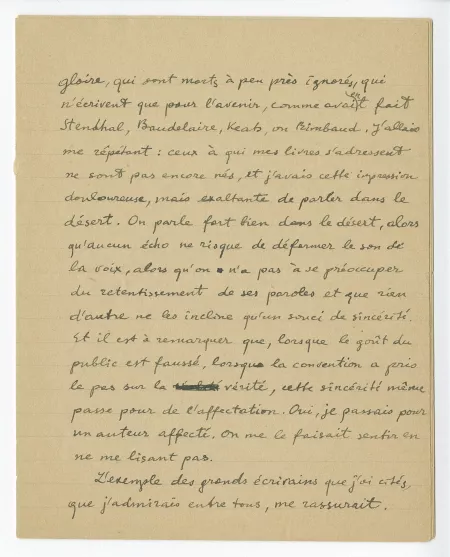 gloire, qui sont morts à peu près ignorés, qui
n'écrivent que pour l'avenir, comme avaient fait
Stendhal, Baudelaire, Keats, ou Rimbaud. J'allais
me répétant : ceux à qui mes livres s'adressent
ne sont pas encore nés, et j'avais cette impression
douloureuse, mais exaltante de parler dans le
désert. On parle fort bien dans le désert, alors
qu'aucun écho ne risque de déformer le son de
la voix, alors qu'on n'a pas à se préoccuper
du retentissement de ses paroles et que rien
d'autre ne les incline qu'un souci de sincérité.
Et il est à remarquer que, lorsque le goût du
public est faussé, lorsque la convention a pris
le pas sur la vérité, cette sincérité même
passe pour de l'affectation. Oui, je passais pour
un auteur affecté. On me le faisait sentir en
ne me lisant pas.
L'exemple des grands écrivains que j'ai cités,
que j'admirais entre tous, me rassurait.